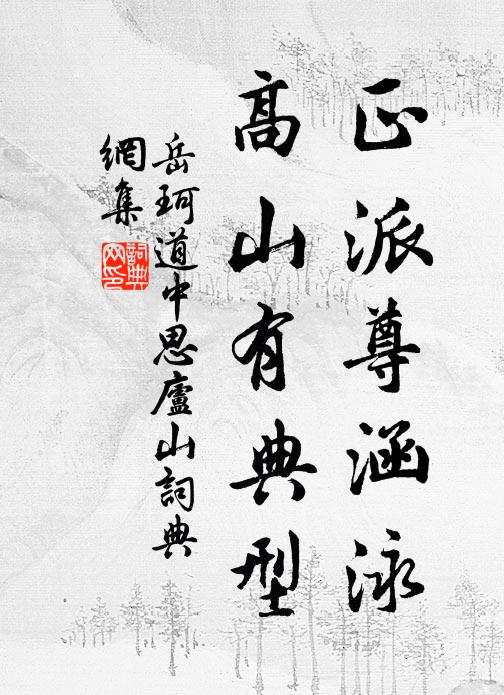 正派尊涵泳
高山有典型
岳珂道中思廬山詞典
網集
詞典
网印